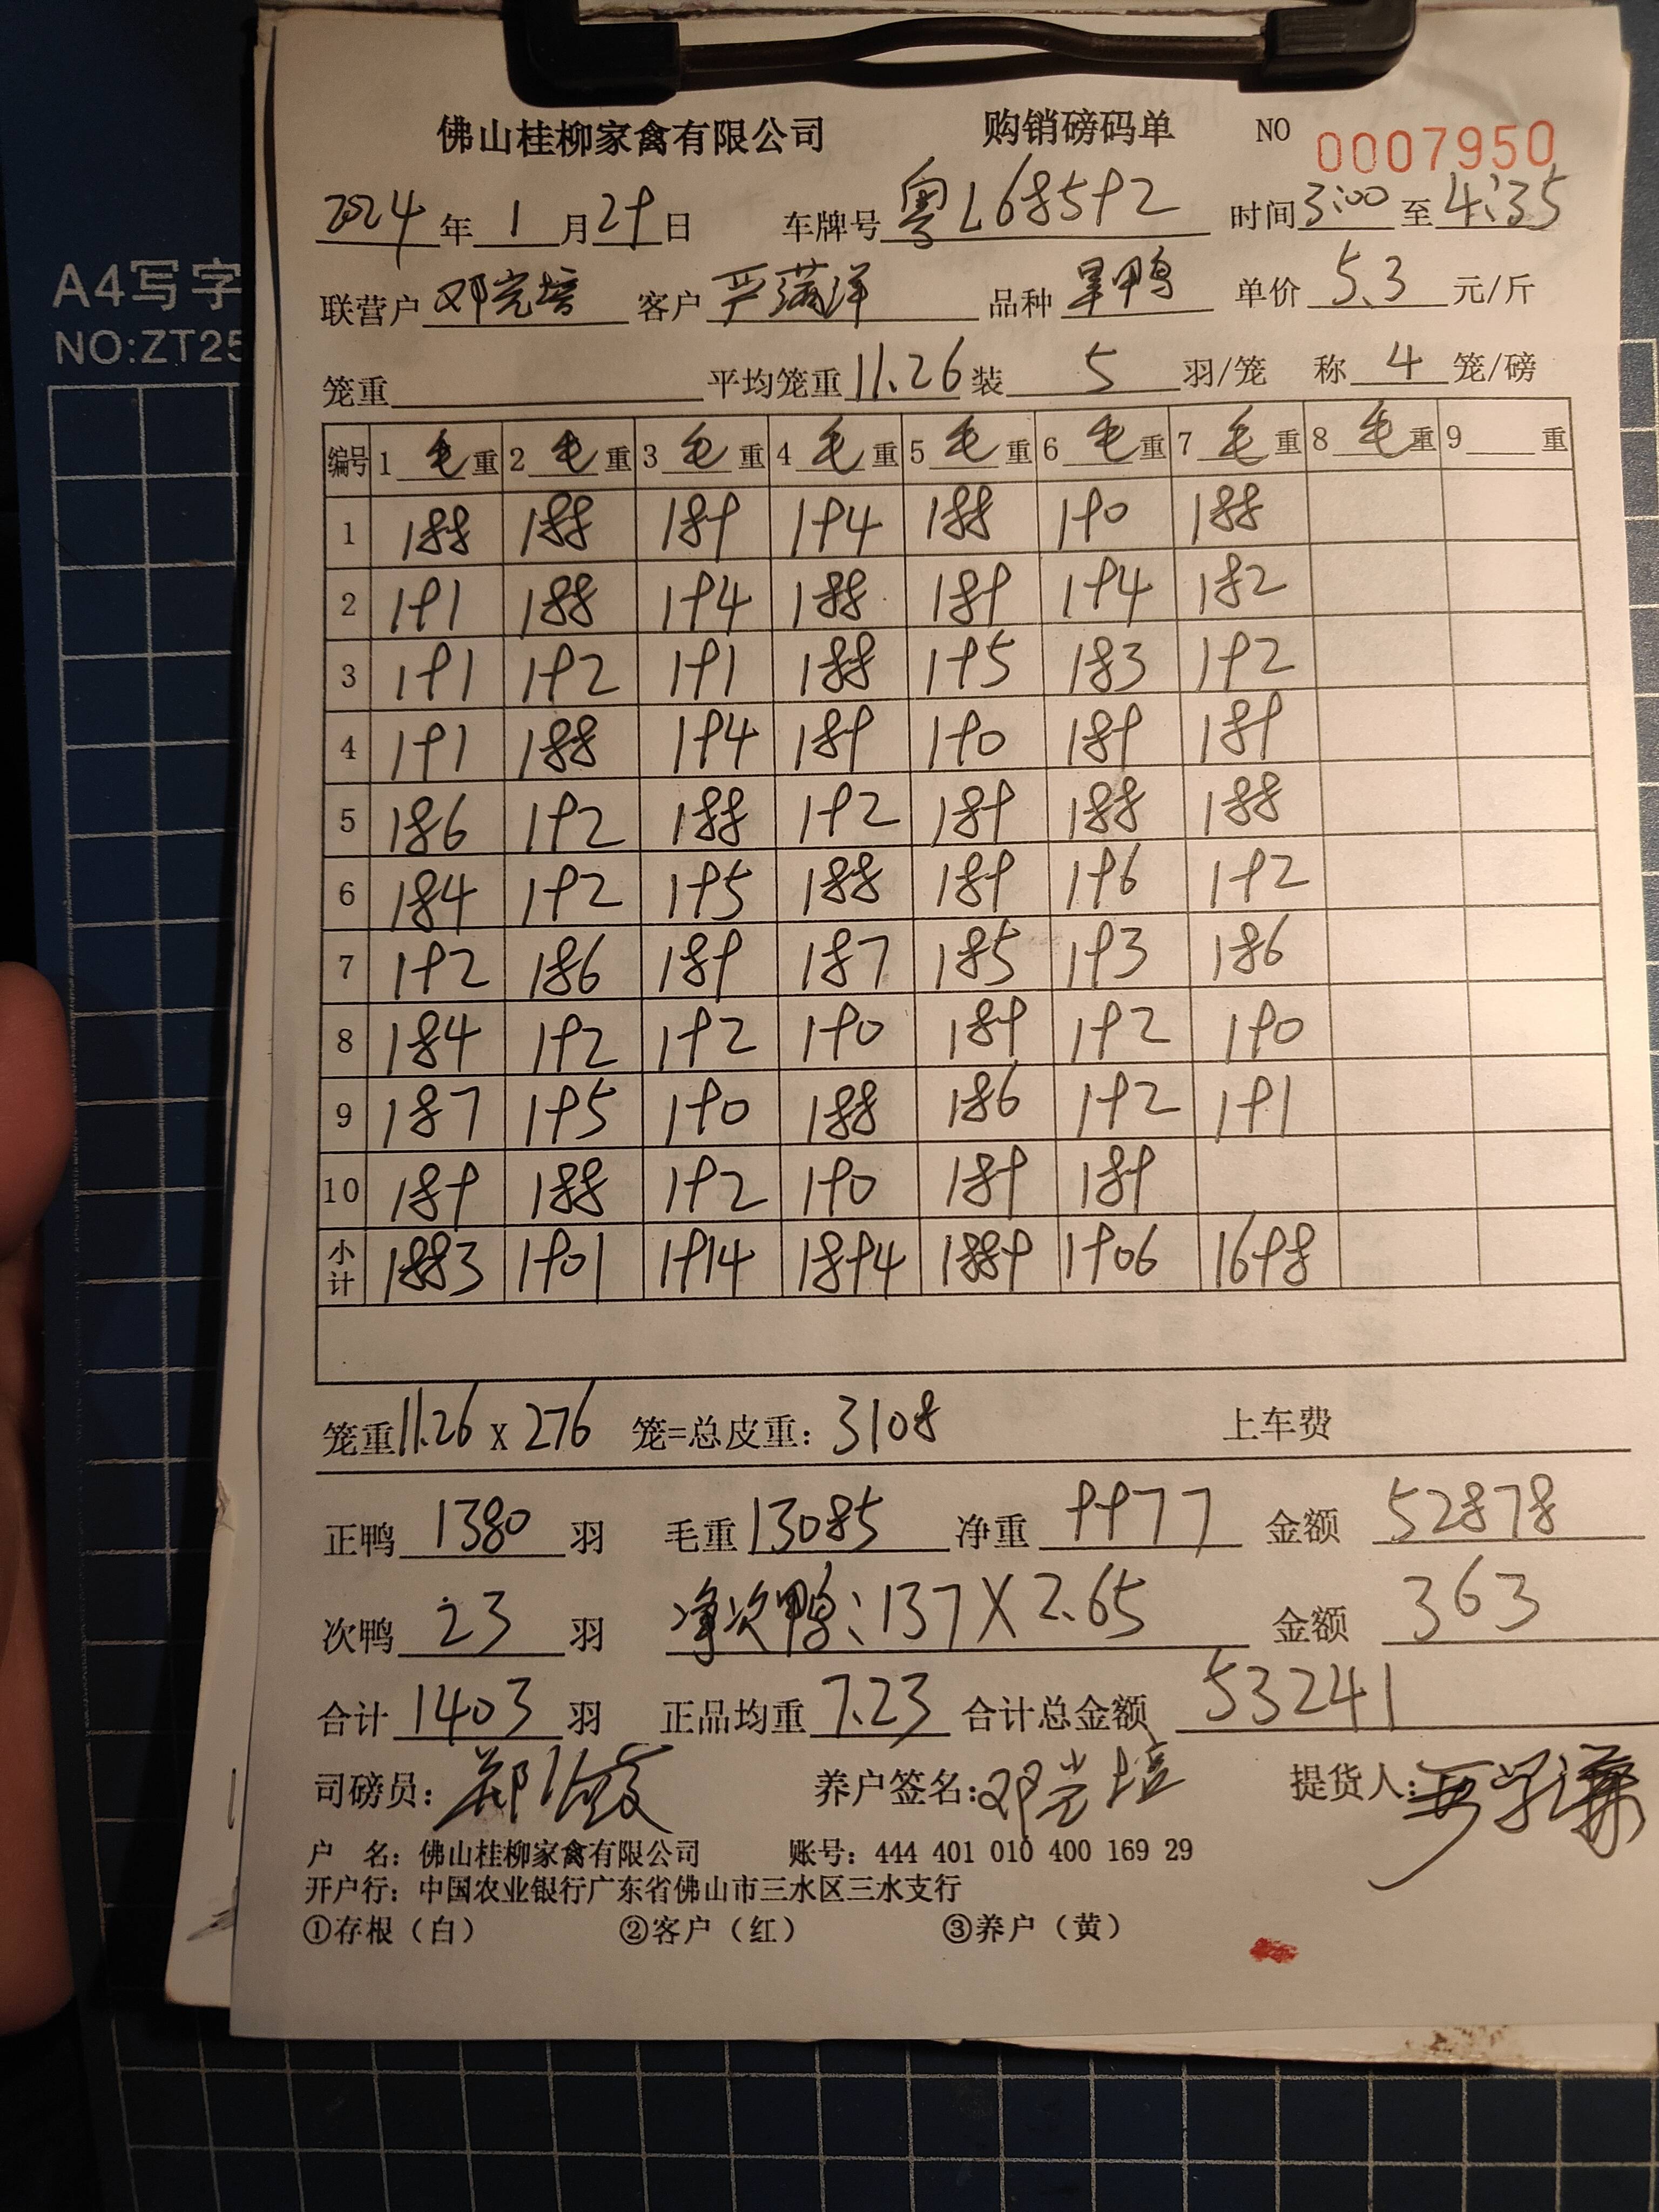 佛山桂柳家禽有限公司 购销磅码单 NO 0007950
2024年1月29日 车牌号粤L68592 时间3:00至4:35
A4写字
联营户邓光培 客户严满洋 品种旱鸭 单价5.3元/斤
NO:ZT25
笼重 平均笼重11.26装5羽/笼 称4笼/磅
编号 1毛重 2毛重 3毛重 4毛重 5毛重 6毛重 7毛重 8毛重 9 重
1 188 188 189 194 188 190 188
2 191 188 194 188 189 194 182
3 191 192 191 188 195 183 192
4 191 188 194 189 190 189 189
5 186 192 188 192 189 188 188
6 184 192 195 188 189 196 192
7 192 186 189 187 185 193 186
8 184 192 192 190 189 192 190
9 187 195 190 188 186 192 191
10 189 188 192 190 189 189
小计 1883 1901 1914 1894 1889 1906 1698
笼重11.26 X 276 笼=总皮重：3108 上车费
正鸭1380羽 毛重13085 净重9977 金额52878
次鸭23羽 净次鸭：137X2.65 金额363
合计1403羽 正品均重7.23 合计总金额53241
司磅员： 养户签名：邓光培 提货人：
户 名：佛山桂柳家禽有限公司 账号：444 401 010 400 169 29
开户行：中国农业银行广东省佛山市三水区三水支行
①存根（白） ②客户（红） ③养户（黄）